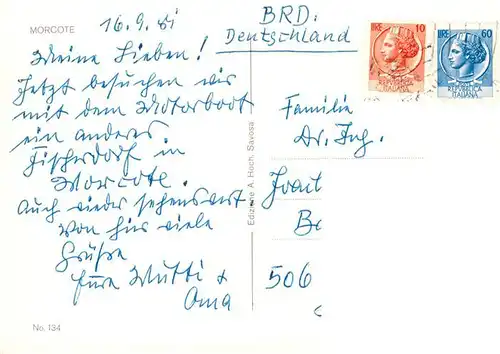 MORCOTE
16.9.61
Meine Lieben!
Jetzt besuchen wir
mit dem Motorboot
ein anderes
Fischerdorf in
Morcote.
Auch wieder sehenswert
Von hier viele
Grüße
Eure Mutti +
Oma
No. 134
Edizione A. Huch, Savosa
BRD.
Deutschland
LIRE 10
REPUBBLICA
ITALIANA
LIRE 60
REPUBBLICA
ITALIANA
Familie
Dr. Ing.
506